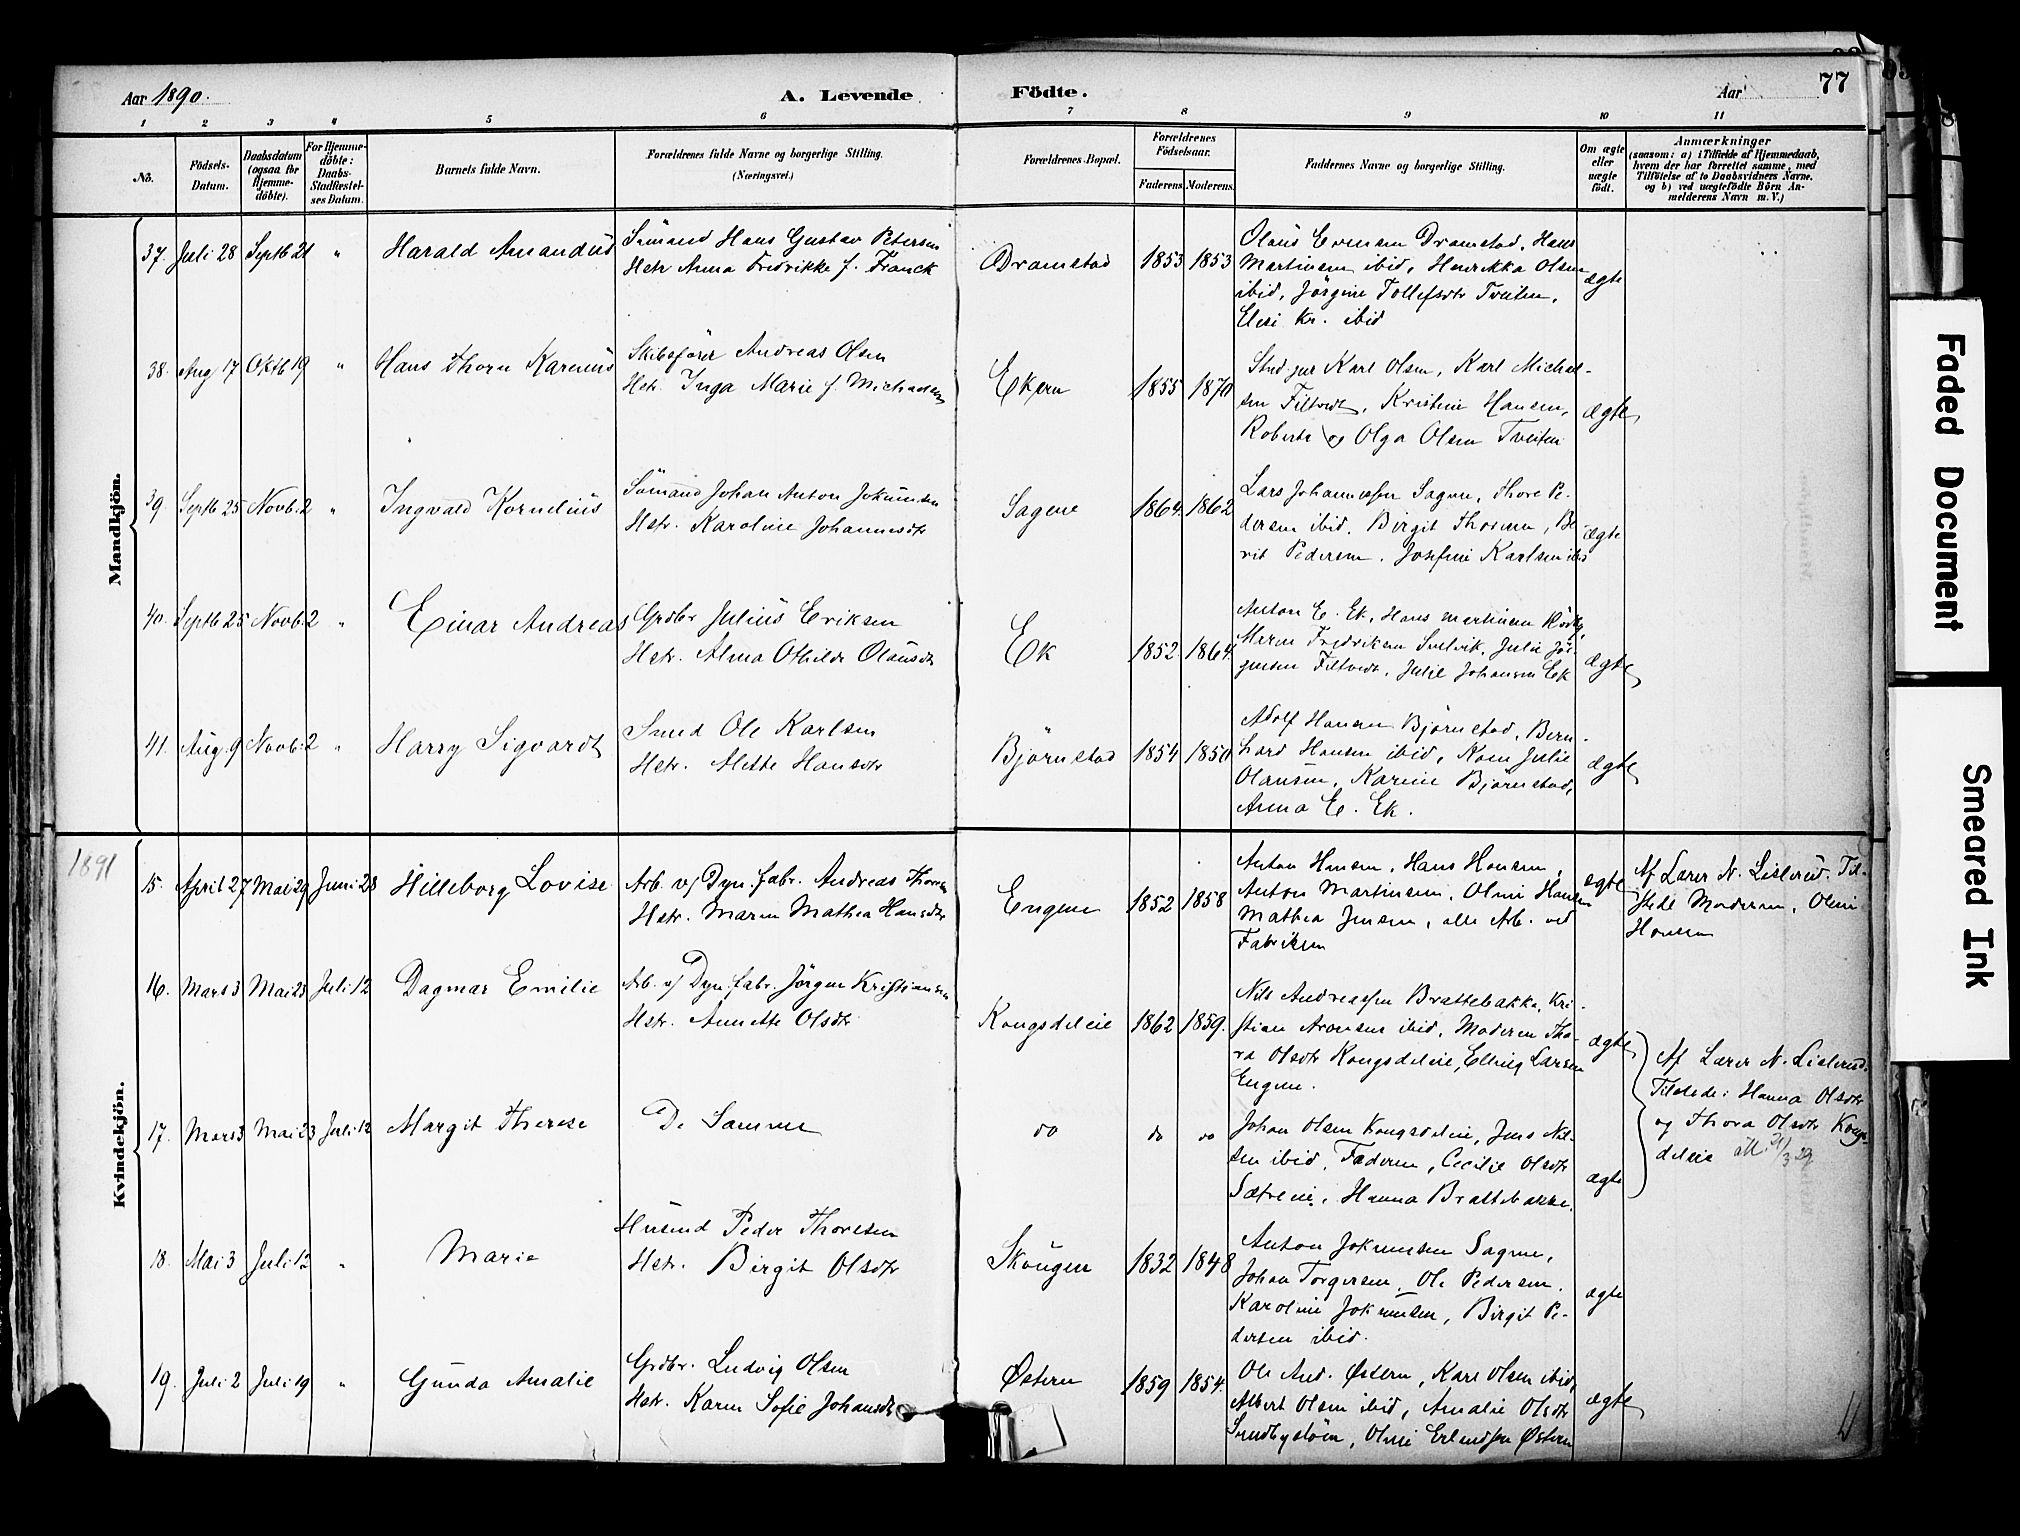 Aar 1890.
A. Levende Födte.
Aar
77
1 2 3 4 5 6 7 8 9 10 11
No.
Födsels-Datum.
Daabsdatum (ogsaa for Hjemmedöbte).
For Hjemmedöbte: Daabs-Stadfæstelses Datum.
Barnets fulde Navn.
Forældrenes fulde Navne og borgerlige Stilling. (Næringsvei.)
Forældrenes Bopæl.
Forældrenes Födselsaar.
Faderens. Moderens.
Faddernes Navne og borgerlige Stilling.
Om ægte eller uægte födt.
Anmærkninger
(saasom: a) i Tilfælde af Hjemmedaab, hvem der har forrettet samme, med Tilföielse af to Daabsvidners Navne, og b) ved uægtefödte Börn Anmelderens Navn m. V.)
Mandkjön.
37. Juli 28 Septb 21 " Harald Amandus
Sömand Hans Gustav Petersen
Hstr Anna Fredrikke f. Franck
Dramstad 1853 1853
Olaus Evensen Dramstad, Hans
Martinsen ibid, Henrikka Olsen
ibid, Jörgine Tollefsdtr Tveiten,
Elise Kr. ibid
ægte
38. Aug 17 Oktb 19 " Hans Thorn Karenius
Skibsförer Andreas Olsen
Hstr. Inga Marie f. Michaelsen
Ekern 1855 1870
Stud jur Karl Olsen, Karl Michael-
sen Filtvedt, Kristine Hansen,
Roberta og Olga Olsen Tveiten
ægte
39 Septb 25 Novb. 2 " Ingvald Kornelius
Sömand Johan Anton Jokumsen
Hstr. Karoline Johannesdtr
Sagene 1864. 1862
Lars Johannessen Sagene, Thore Pe-
dersen ibid, Birgit Thoresen, Be-
rit Pedersen, Josefine Karlsen ibid
ægte
40. Septb 25 Novb. 2 " Einar Andreas
Grdbr Julius Eriksen
Hstr. Alma Othilde Olausdtr
Ek 1852 1864.
Anton E. Ek, Hans Martinsen Rödby,
Maren Fredriksen Svelvik, Julie Jör-
gensen Filtvedt, Julie Johansen Ek
ægte
41. Aug. 9 Novb. 2 " Harry Sigvardt
Smed Ole Karlsen
Hstr. Mette Hansdtr
Björnstad 1854 1850
Adolf Hansen Björnstad, Bern-
hard Hansen ibid, Karen Julie
Olausen, Karine Björnstad,
Anna E. Ek.
ægte
1891
Kvindekjön.
15. April 27 Mai 29 Juni 28 Hilleborg Lovise
Arb. v/ Dyn. fabr. Andreas Thoresen
Hstr. Maren Mathea Hansdtr
Engene 1852 1858
Anton Hansen, Hans Hansen,
Anton Martinsen, Oline Hansen
Mathea Jensen, alle Arb. ved
Fabriken
ægte
Af Lærer N. Lislerud. Til-
stede Moderen, Oline
Hansen
16. Mars 3 Mai 23 Juli 12 Dagmar Emilie
Arb. v/ Dyn. fabr. Jörgen Kristiansen
Hstr. Annette Olsdtr
Kongsdeleie 1862 1859.
Nils Andreassen Brattebakke, Kri-
stian Aronsen ibid, Moderen Tho-
ra Olsdtr Kongsdeleie, Elling Larsen
Engene.
ægte
Af Lærer N. Lislerud.
Tilstede: Hanna Olsdtr
og Thora Olsdtr Kongs-
deleie att. 21/3 29
17. Mars 3 Mai 23 Juli 12 Margit Therese
De Samme
do do do
Johan Olsen Kongsdeleie, Jens Nil-
sen ibid, Faderen, Cecilie Olsdtr
Sætreeie, Hanna Brattebakke.
ægte
18. Mai 3 Juli 12 " Marie
Husmd Peder Thoresen
Hstr. Birgit Olsdtr
Skougen 1832 1848
Anton Jokumsen Sagene,
Johan Torgersen, Ole Pedersen,
Karoline Jokumsen, Birgit Pe-
dersen ibid.
ægte
19. Juli 2 Juli 19 " Gunda Amalie
Grdbr. Ludvig Olsen
Hstr. Karen Sofie Johansdtr
Østern 1859 1854.
Ole And. Østern, Karl Olsen ibid,
Albert Olsen ibid, Amalie Olsdtr
Sundbystöen, Oline Erlandsen Østern
ægte
Faded Document
Smeared Ink